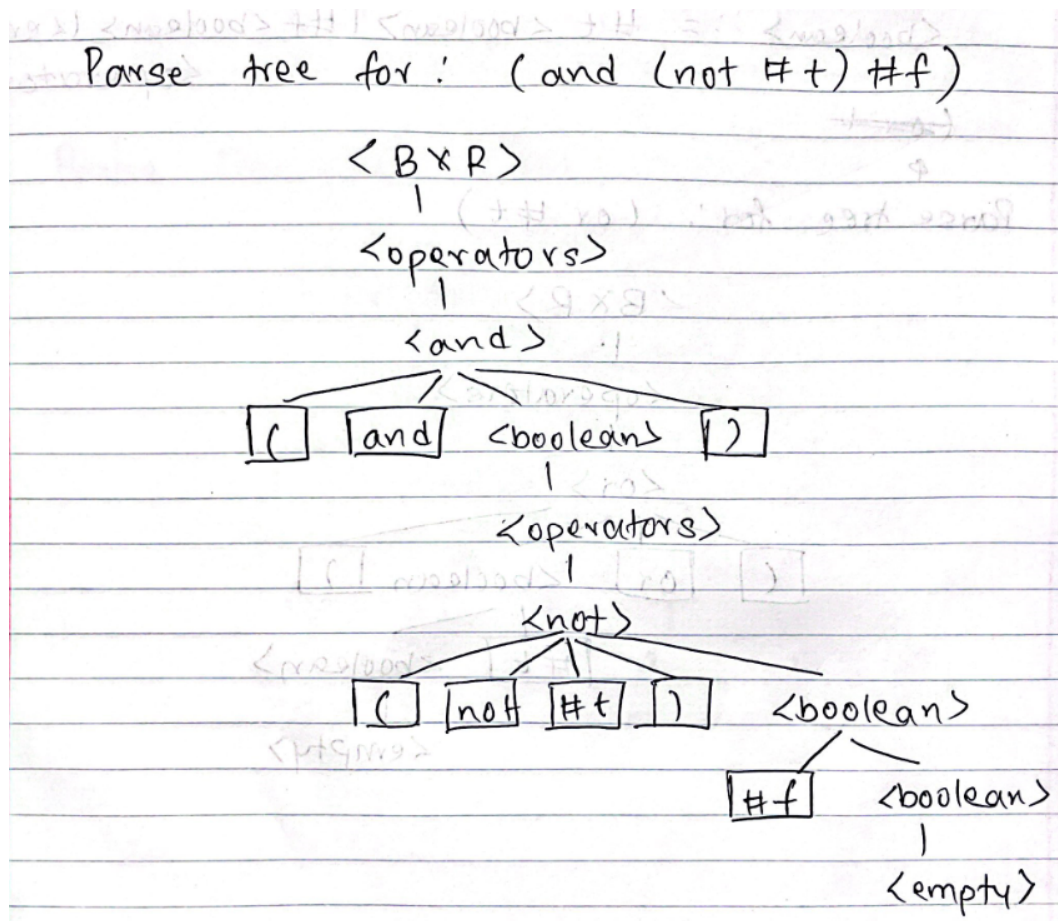 Parse tree for: (and (not #t) #f)
<BXR>
<operators>
<and>
( and <boolean> )
<operators>
<not>
( not #t ) <boolean>
#f <boolean>
<empty>